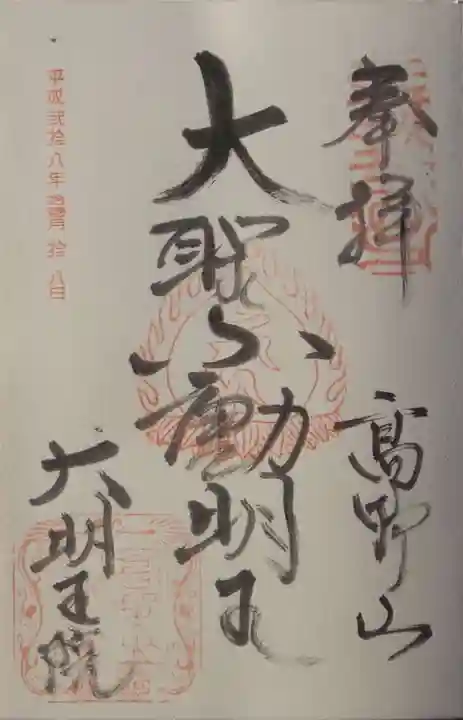 奉拝
高野山
大聖不動明王
大明王院
平成弐拾八年
拾八日